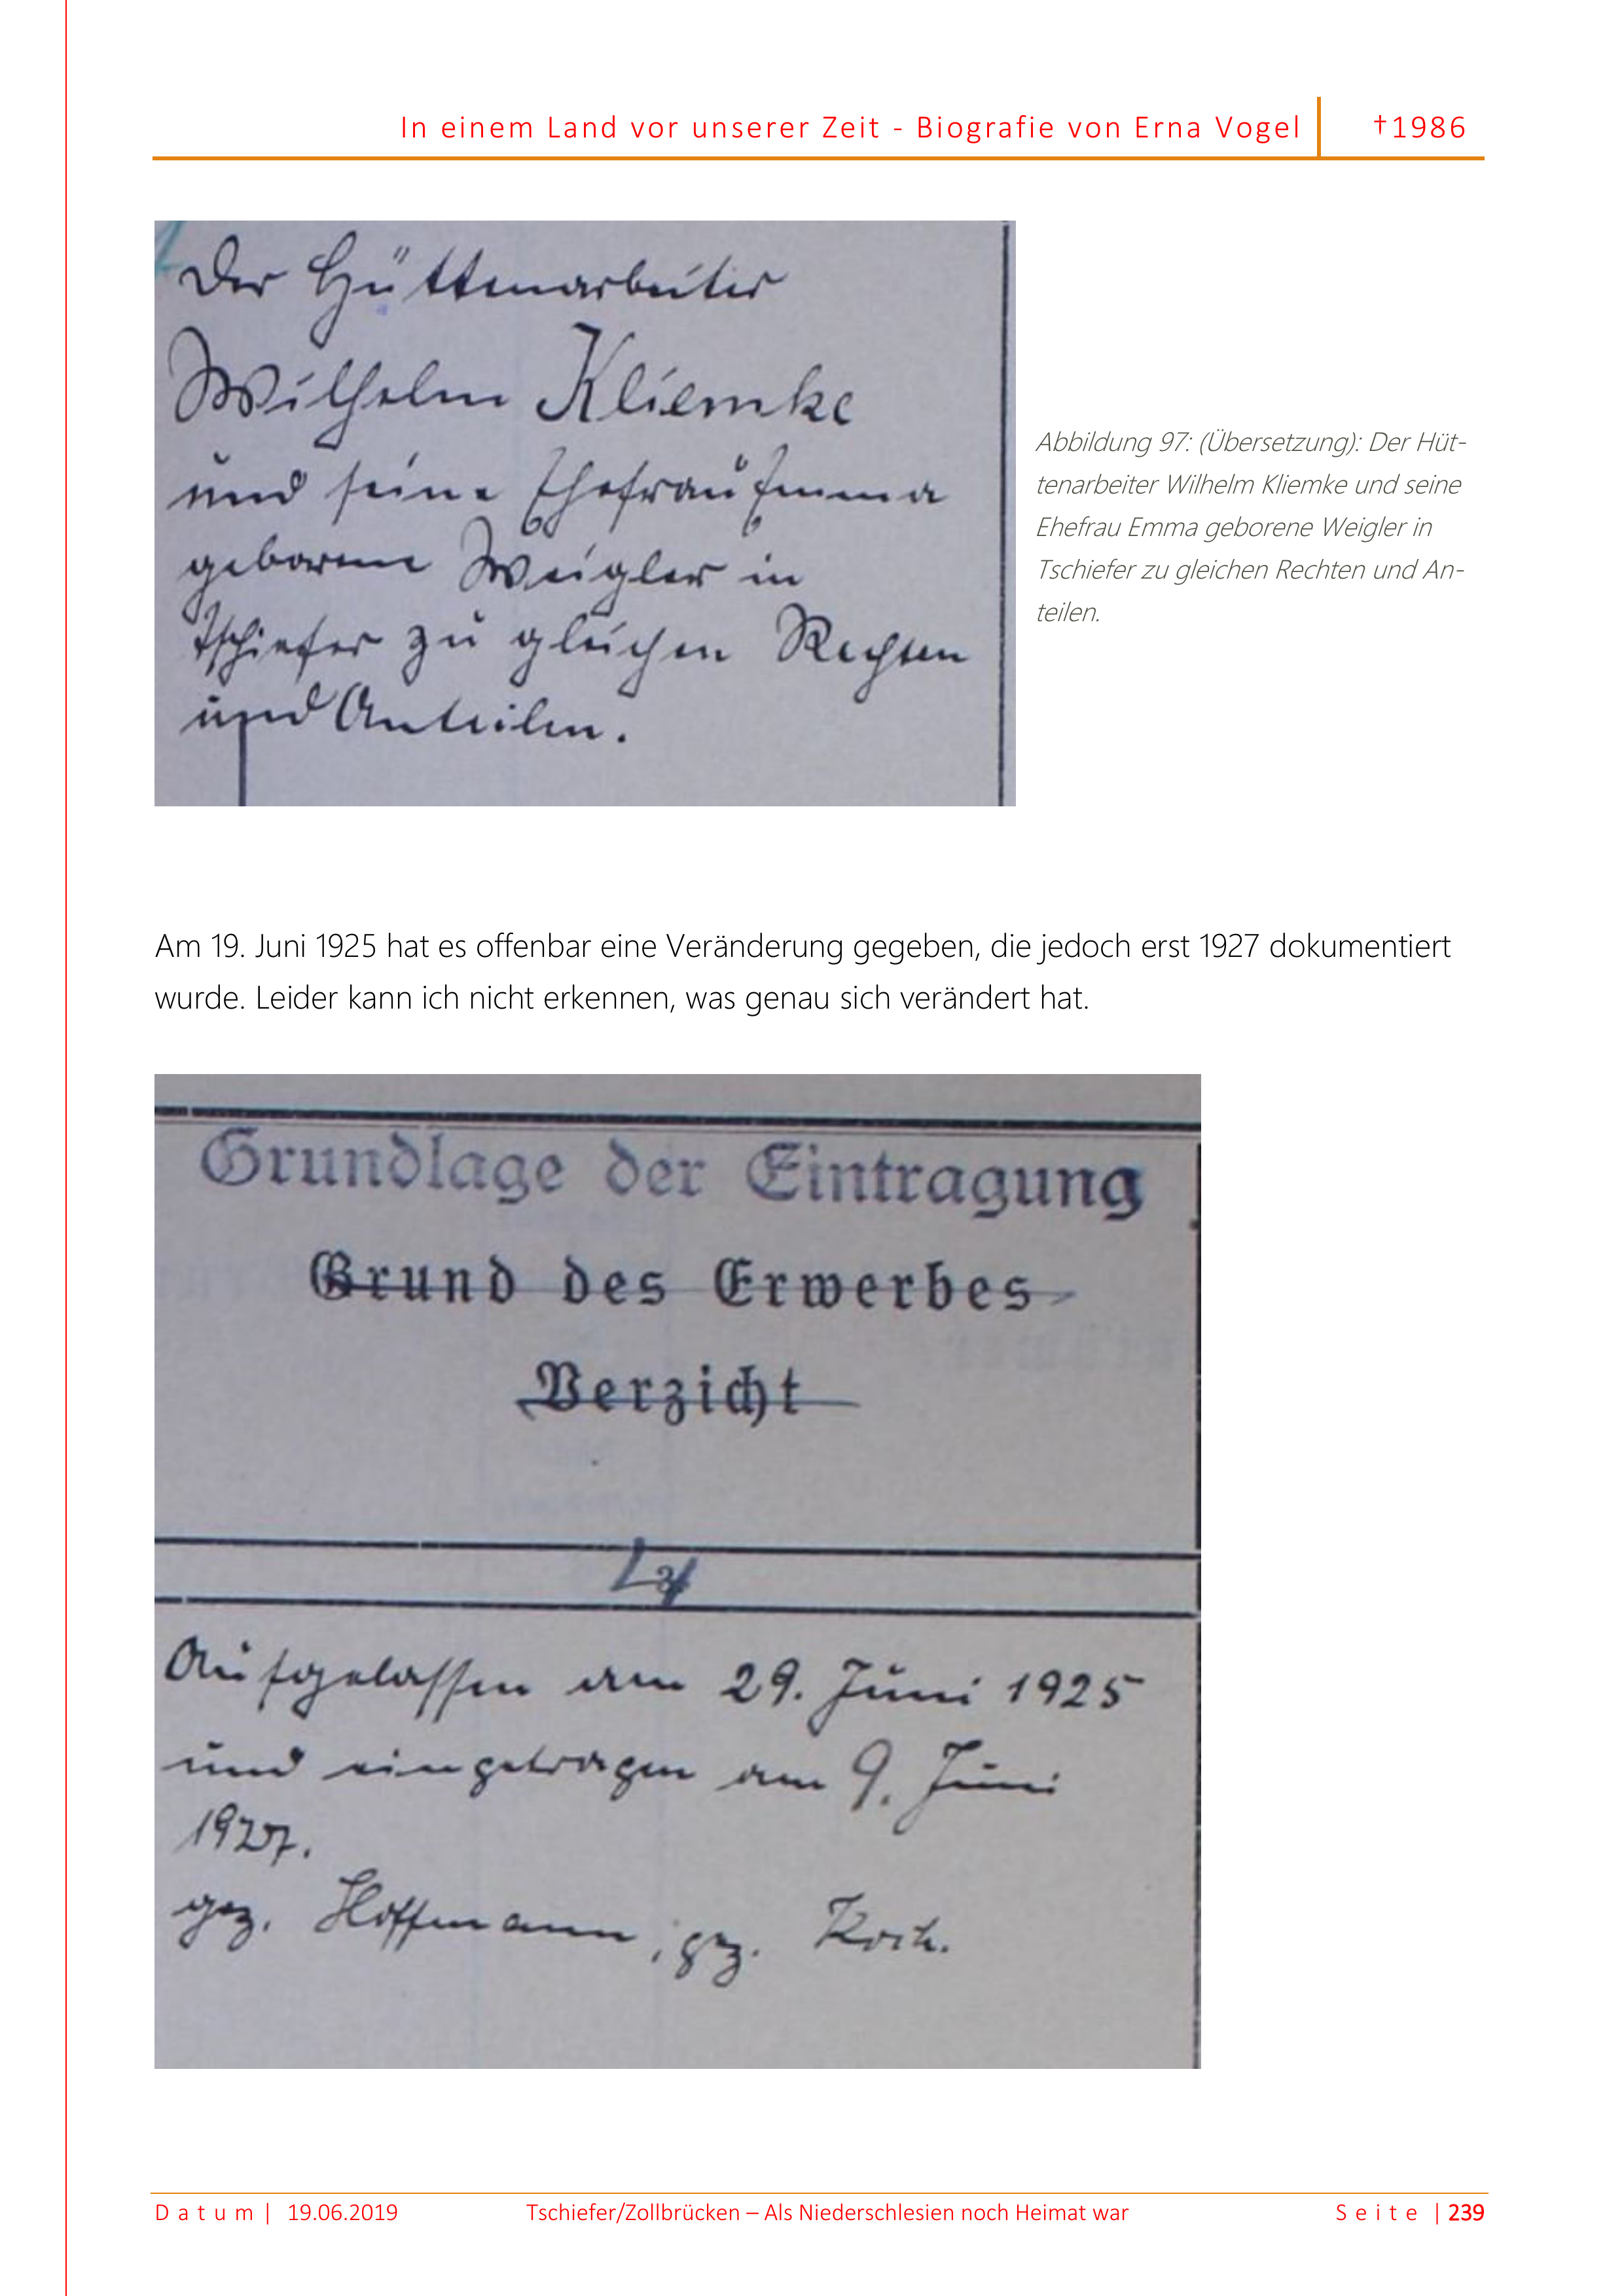 In einem Land vor unserer Zeit - Biografie von Erna Vogel †1986
Der Hüttenarbeiter
Wilhelm Kliemke
und seine Ehefrau Emma
geborene Weigler in
Tschiefer zu gleichen Rechten
und Anteilen.
Abbildung 97: (Übersetzung): Der Hüt-
tenarbeiter Wilhelm Kliemke und seine
Ehefrau Emma geborene Weigler in
Tschiefer zu gleichen Rechten und An-
teilen.
Am 19. Juni 1925 hat es offenbar eine Veränderung gegeben, die jedoch erst 1927 dokumentiert
wurde. Leider kann ich nicht erkennen, was genau sich verändert hat.
Grundlage der Eintragung
Grund des Erwerbes
Verzicht
Aufgelassen am 29. Juni 1925
und eingetragen am 9. Juni
1927.
gez. Hoffmann, gez. Koch.
Datum | 19.06.2019 Tschiefer/Zollbrücken – Als Niederschlesien noch Heimat war Seite | 239